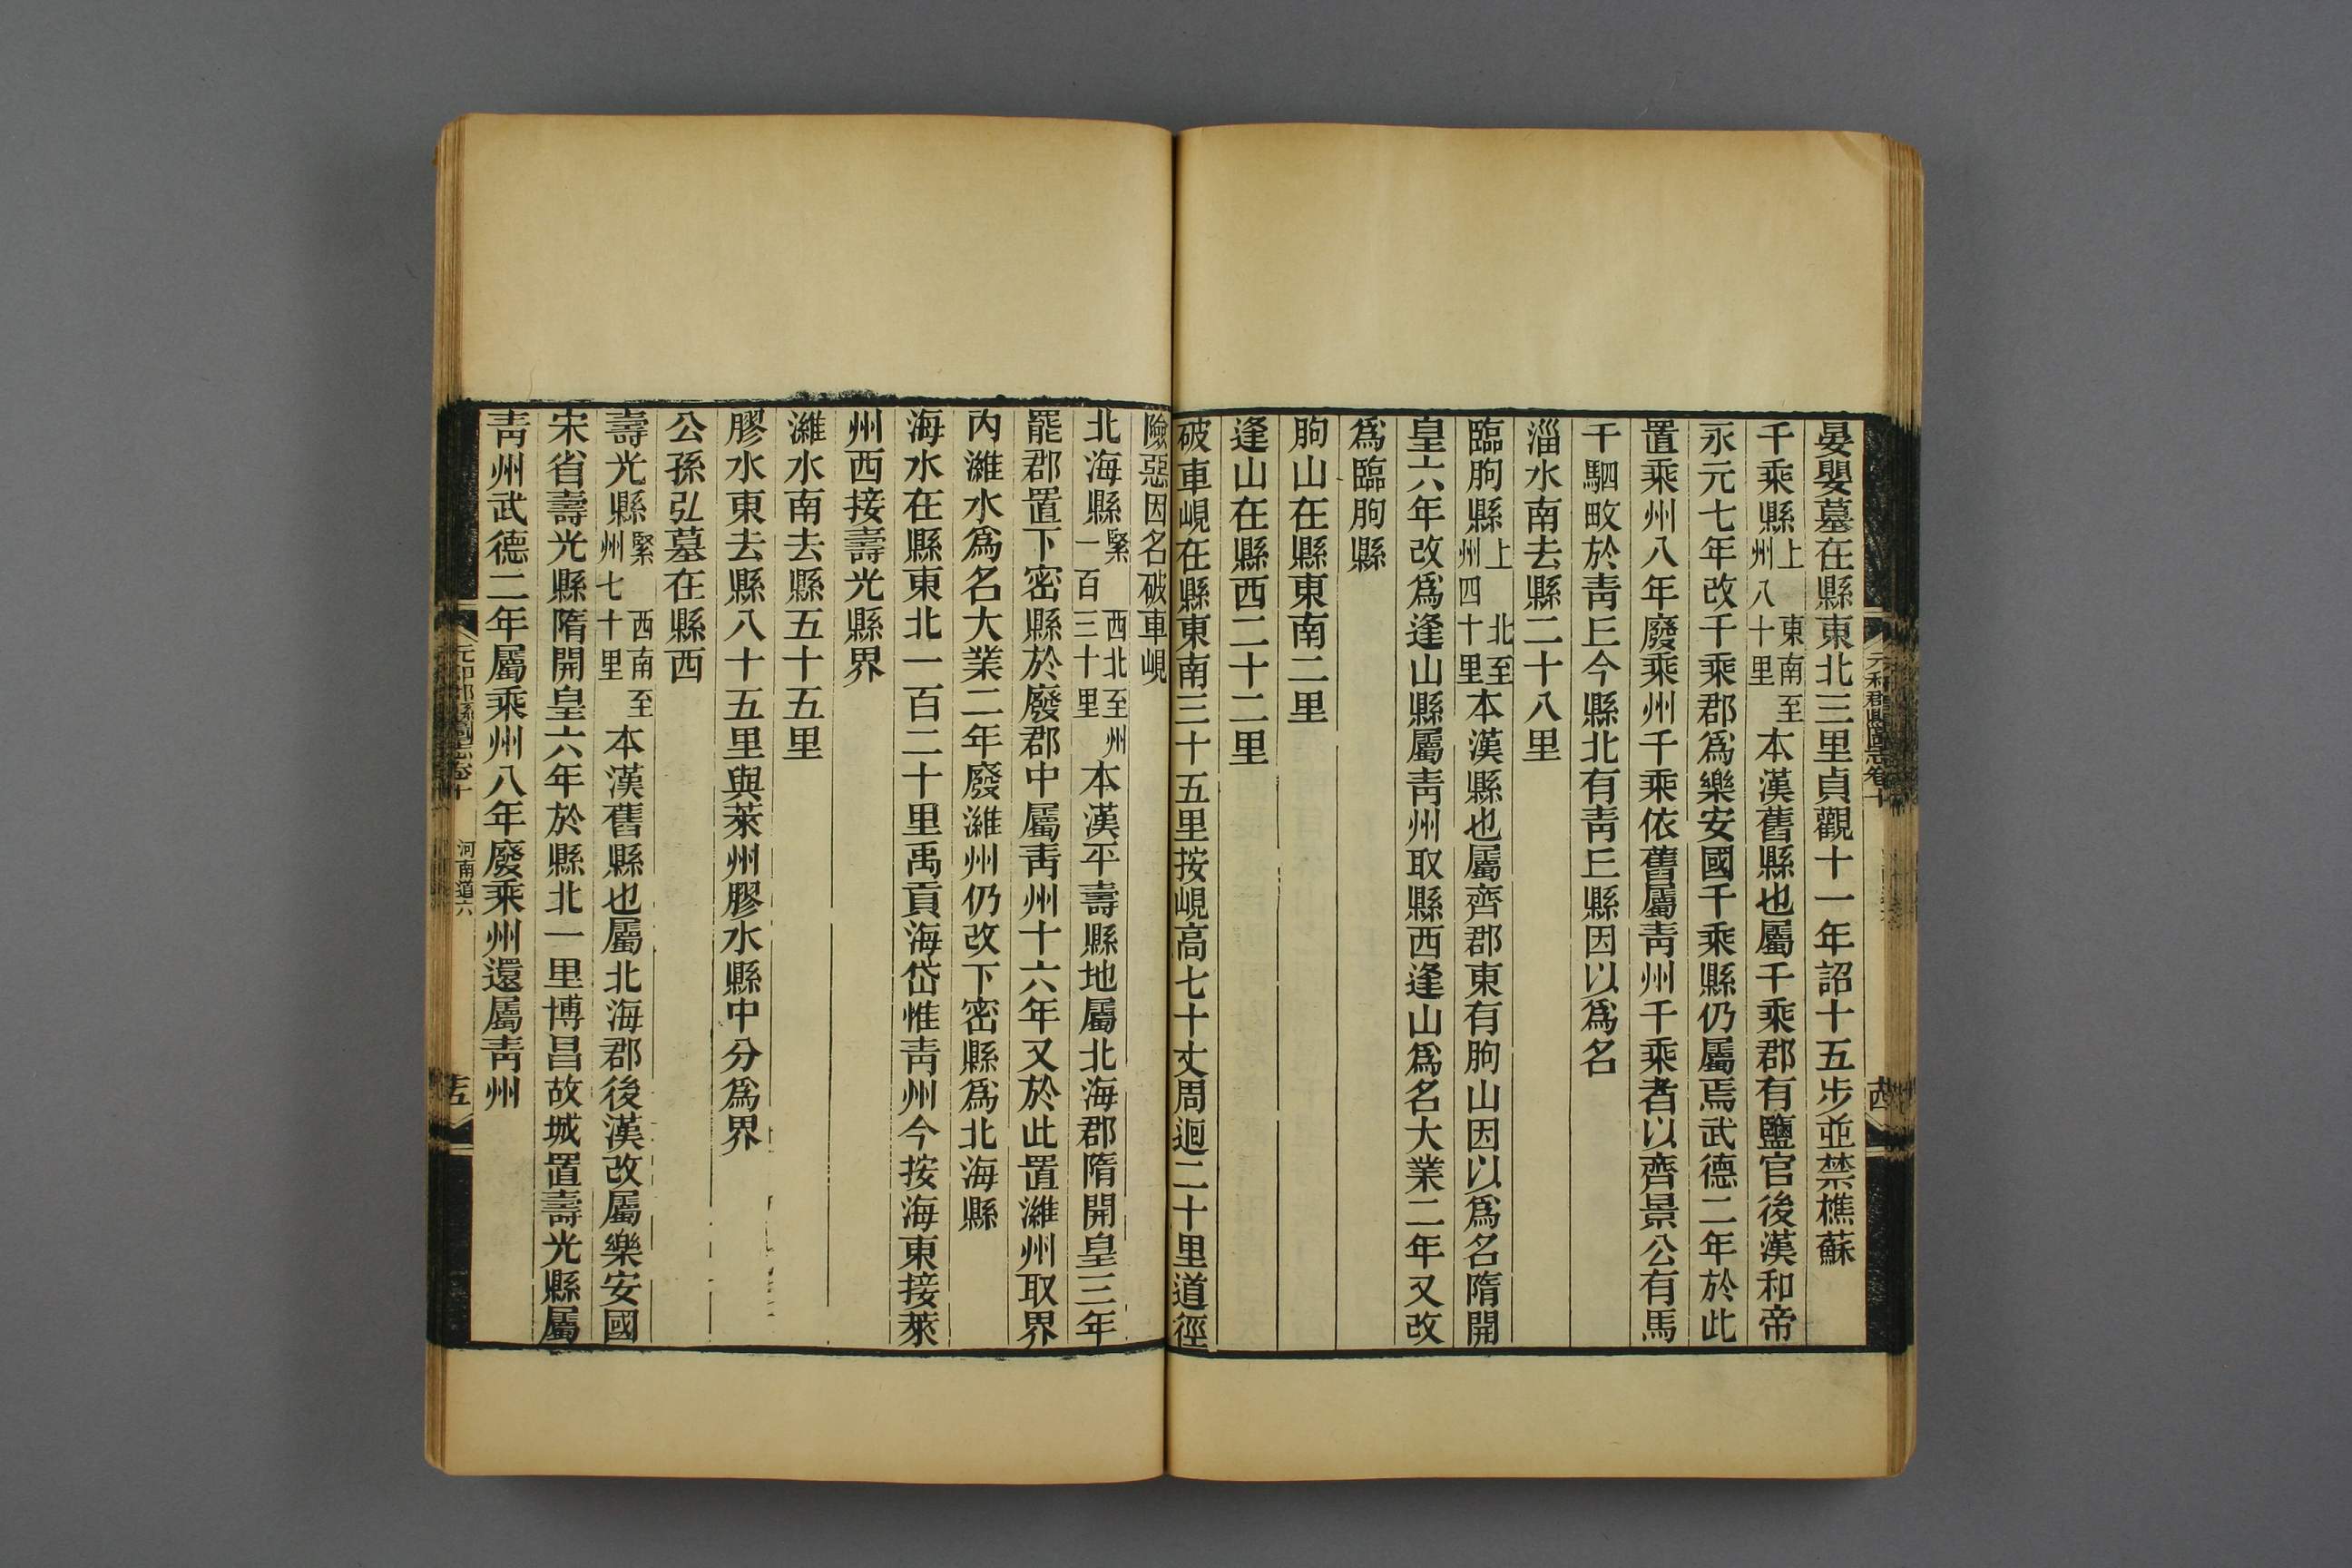 晏嬰墓在縣東北三里貞觀十一年詔十五步並禁樵蘇
千乘縣上 東南至州八十里本漢舊縣也屬千乘郡有鹽官後漢和帝
永元七年改千乘郡爲樂安國千乘縣仍屬焉武德二年於此
置乘州八年廢乘州千乘依舊屬青州千乘者以齊景公有馬
千駟畋於青丘今縣北有青丘縣因以爲名
淄水南去縣二十八里
臨朐縣上 北至州四十里本漢縣也屬齊郡東有朐山因以爲名隋開
皇六年改爲逢山縣屬青州取縣西逢山爲名大業二年又改
爲臨朐縣
朐山在縣東南二里
逢山在縣西二十二里
破車峴在縣東南三十五里按峴高七十丈周迴二十里道徑
險惡因名破車峴
北海縣緊 西北至州一百三十里本漢平壽縣地屬北海郡隋開皇三年
罷郡置下密縣於廢郡中屬青州十六年又於此置濰州取界
内濰水爲名大業二年廢濰州仍改下密縣爲北海縣
海水在縣東北一百二十里禹貢海岱惟青州今按海東接萊
州西接壽光縣界
濰水南去縣五十五里
膠水東去縣八十五里與萊州膠水縣中分爲界
公孫弘墓在縣西
壽光縣緊 西南至州七十里本漢舊縣也屬北海郡後漢改屬樂安國
宋省壽光縣隋開皇六年於縣北一里博昌故城置壽光縣屬
青州武德二年屬乘州八年廢乘州還屬青州
元和郡縣圖志卷十
河南道六